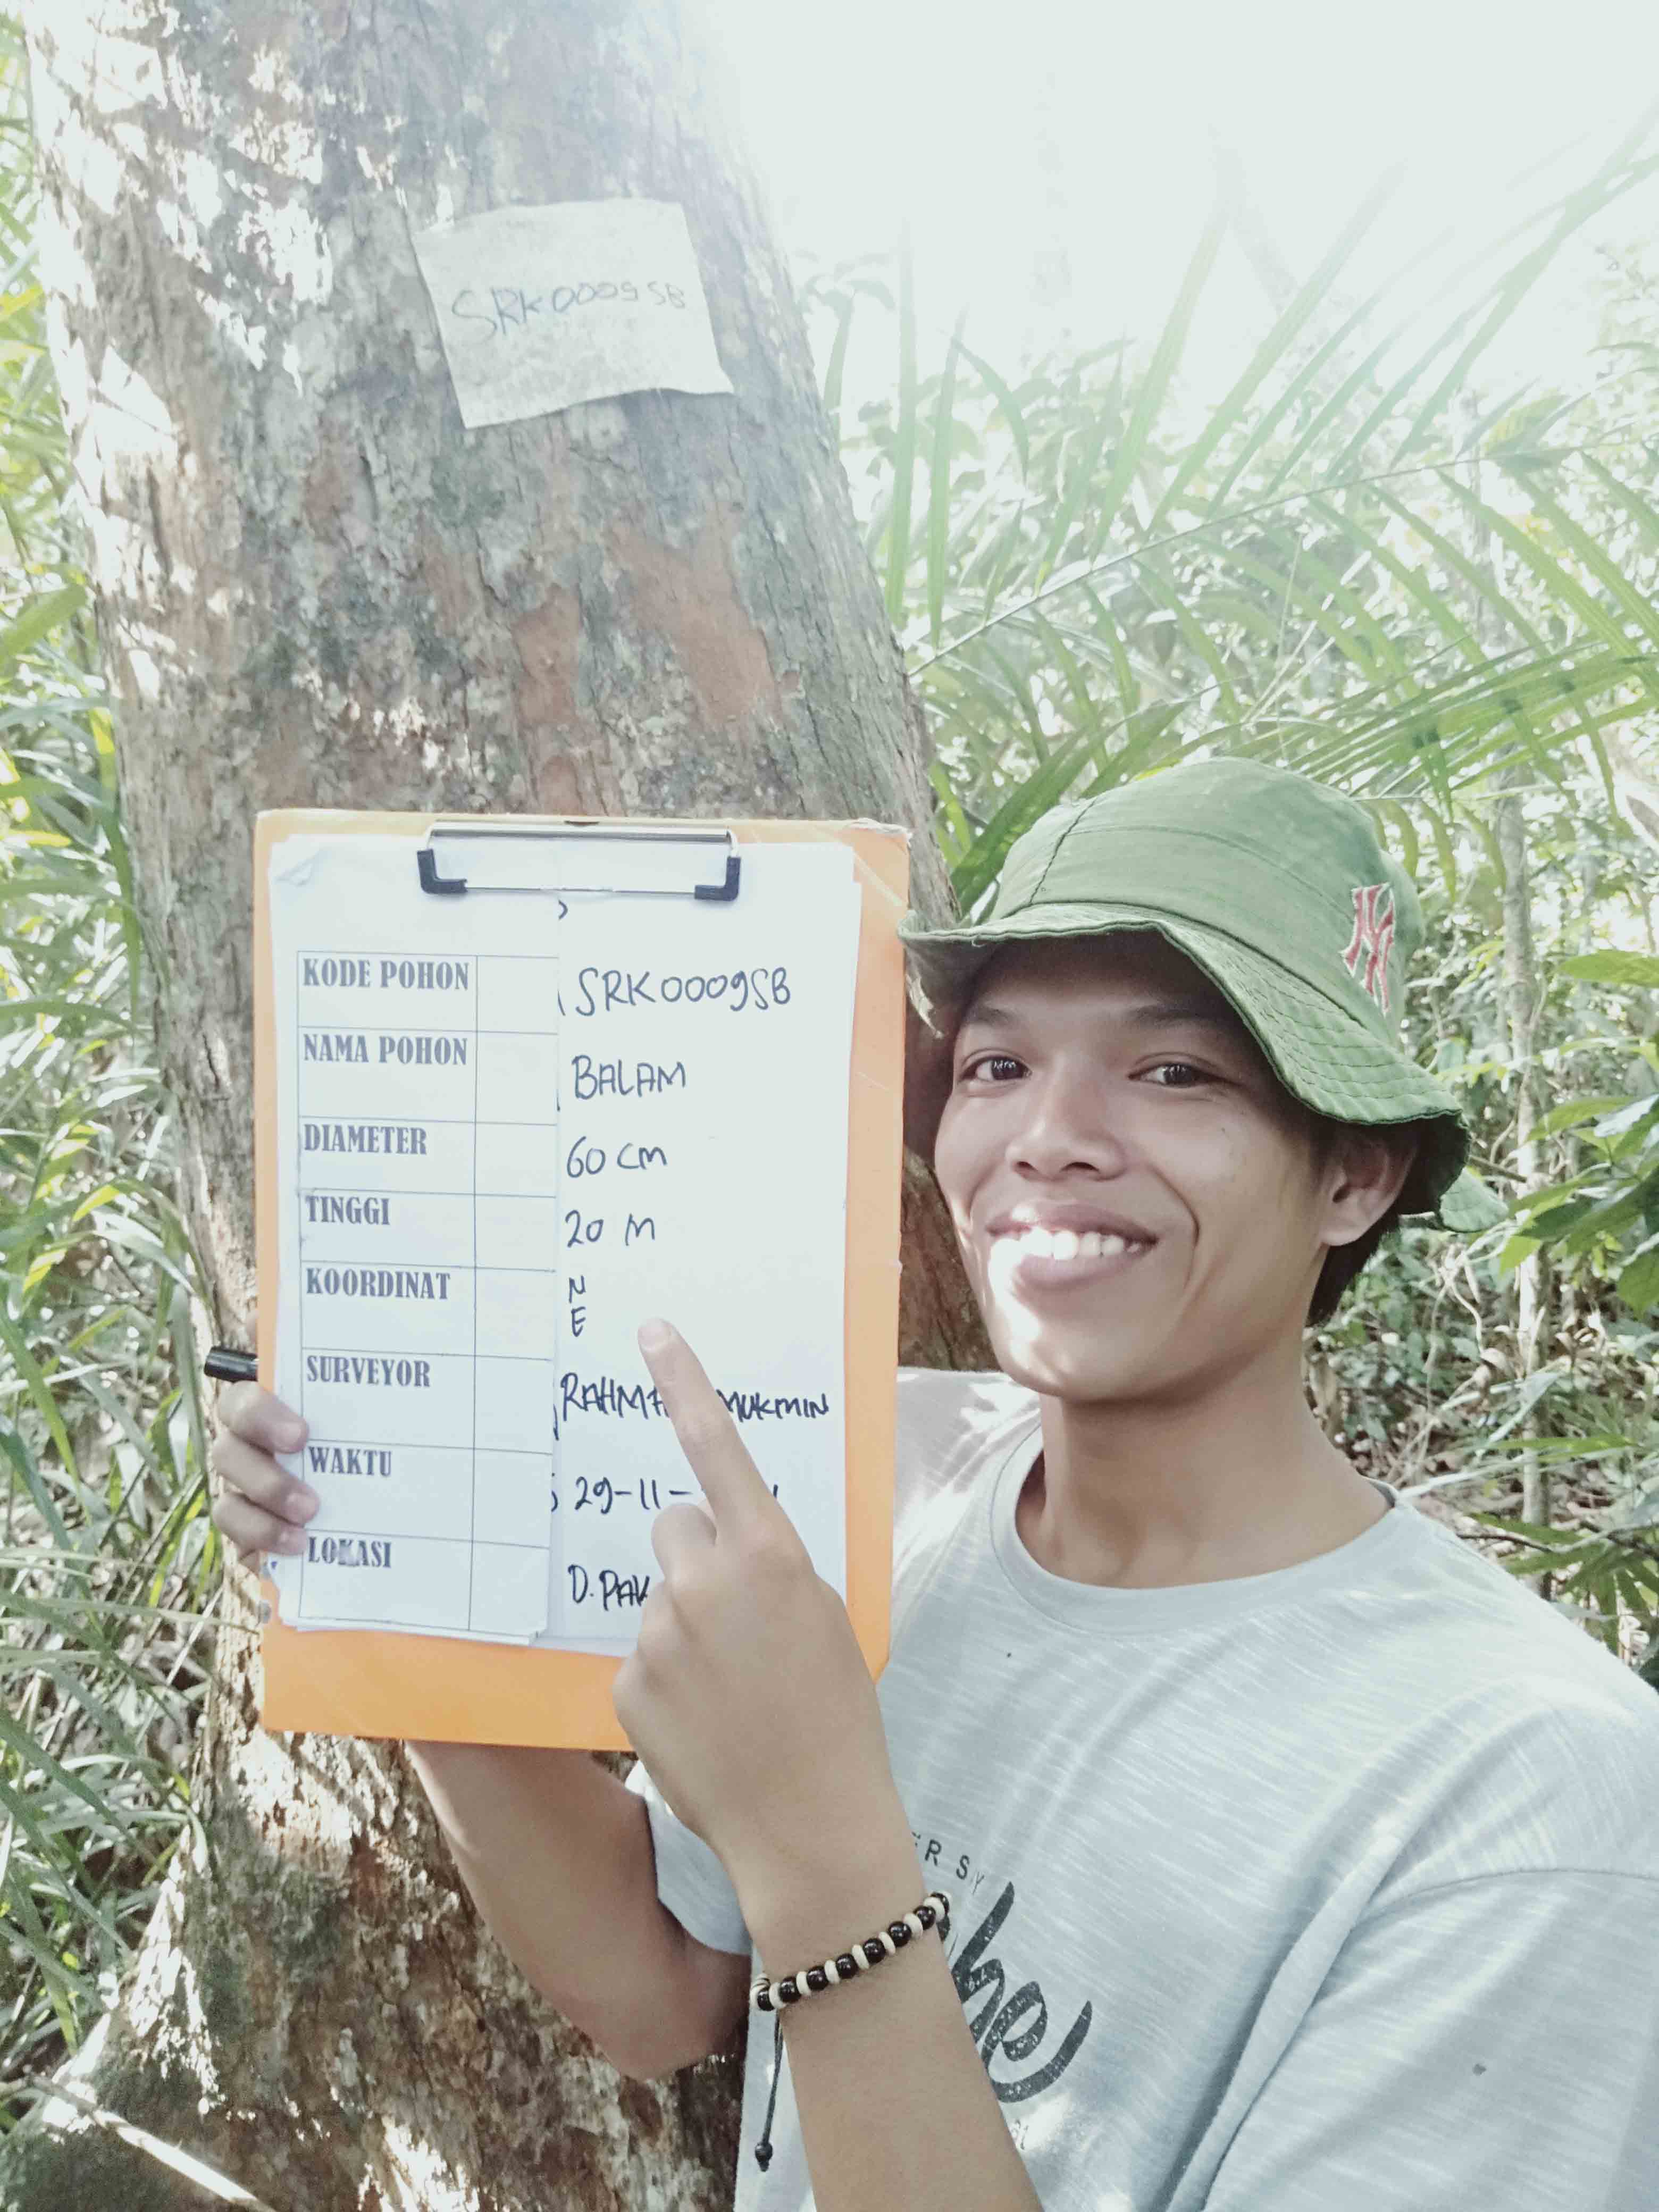 SRK0009SB
KODE POHON SRK0009SB
NAMA POHON BALAM
DIAMETER 60 CM
TINGGI 20 M
KOORDINAT N
E
SURVEYOR MUKMIN
WAKTU 29-11-
LOKASI D.
NY